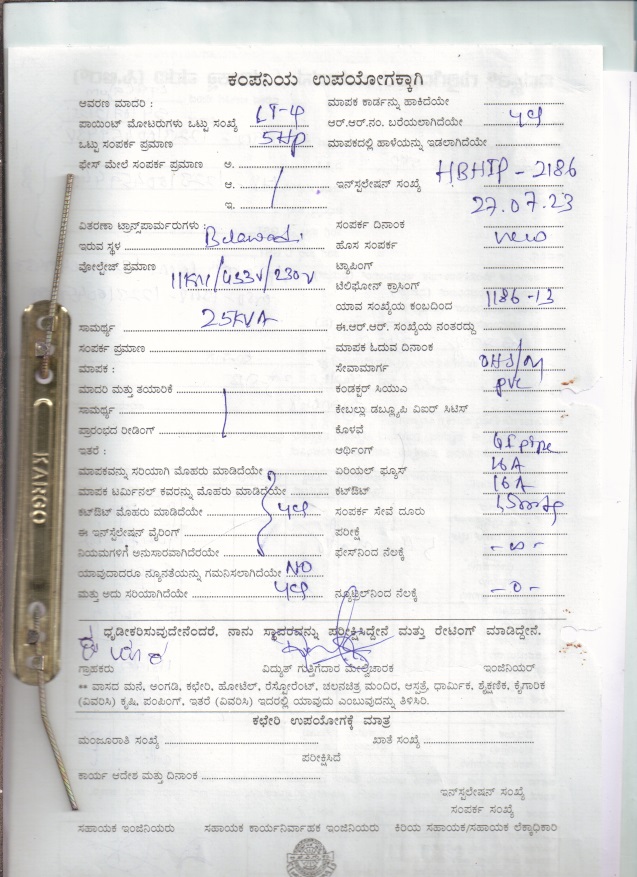 ಕಂಪನಿಯ ಉಪಯೋಗಕ್ಕಾಗಿ
ಆವರಣ ಮಾದರಿ : LT-4 ಮಾಪಕ ಕಾರ್ಡನ್ನು ಹಾಕಿದೆಯೇ
ಪಾಯಿಂಟ್ ಮೋಟರುಗಳು ಒಟ್ಟು ಸಂಖ್ಯೆ ಆರ್.ಆರ್.ನಂ. ಬರೆಯಲಾಗಿದೆಯೇ
ಒಟ್ಟು ಸಂಪರ್ಕ ಪ್ರಮಾಣ 5HP ಮಾಪಕದಲ್ಲಿ ಹಾಳೆಯನ್ನು ಇಡಲಾಗಿದೆಯೇ
ಫೇಸ್ ಮೇಲೆ ಸಂಪರ್ಕ ಪ್ರಮಾಣ ಅ.
ಆ. ಇನ್‌ಸ್ಟಲೇಷನ್ ಸಂಖ್ಯೆ HBHIP - 2186
ಇ. 27.07.23
ವಿತರಣಾ ಟ್ರಾನ್ಸ್‌ಪಾರ್ಮರುಗಳು : ಸಂಪರ್ಕ ದಿನಾಂಕ
ಇರುವ ಸ್ಥಳ Belawadi ಹೊಸ ಸಂಪರ್ಕ new
ವೋಲ್ಟೇಜ್ ಪ್ರಮಾಣ 11KV/433V/230V ಟ್ಯಾಪಿಂಗ್
ಟೆಲಿಫೋನ್ ಕ್ರಾಸಿಂಗ್
ಯಾವ ಸಂಖ್ಯೆಯ ಕಂಬದಿಂದ 1186-13
ಸಾಮರ್ಥ್ಯ 25KVA ಈ.ಆರ್.ಆರ್. ಸಂಖ್ಯೆಯ ನಂತರದ್ದು
ಸಂಪರ್ಕ ಪ್ರಮಾಣ ಮಾಪಕ ಓದುವ ದಿನಾಂಕ
ಮಾಪಕ : ಸೇವಾಮಾರ್ಗ
ಮಾದರಿ ಮತ್ತು ತಯಾರಿಕೆ ಕಂಡಕ್ಟರ್ ಸಿಯುಎ pvc
ಸಾಮರ್ಥ್ಯ ಕೇಬಲ್ಲು ಡಬ್ಲ್ಯೂಪಿ ವಿಐರ್ ಸಿಟಿಸ್
ಪ್ರಾರಂಭದ ರೀಡಿಂಗ್ ಕೊಳವೆ
ಇತರೆ : ಆರ್ಥಿಂಗ್ GI pipe
ಮಾಪಕವನ್ನು ಸರಿಯಾಗಿ ಮೊಹರು ಮಾಡಿದೆಯೇ ಏರಿಯಲ್ ಫ್ಯೂಸ್ 16A
ಮಾಪಕ ಟರ್ಮಿನಲ್ ಕವರನ್ನು ಮೊಹರು ಮಾಡಿದೆಯೇ ಕಟ್‌ಔಟ್ 16A
ಕಟ್‌ಔಟ್ ಮೊಹರು ಮಾಡಿದೆಯೇ ಸಂಪರ್ಕ ಸೇವೆ ದೂರು
ಈ ಇನ್‌ಸ್ಟೆಲೇಷನ್ ವೈರಿಂಗ್ ಪರೀಕ್ಷೆ
ನಿಯಮಗಳಿಗೆ ಅನುಸಾರವಾಗಿದೆರಯೇ ಫೇಸ್‌ನಿಂದ ನೆಲಕ್ಕೆ
ಯಾವುದಾದರೂ ನ್ಯೂನತೆಯನ್ನು ಗಮನಿಸಲಾಗಿದೆಯೇ NO
ಮತ್ತು ಅದು ಸರಿಯಾಗಿದೆಯೇ ನ್ಯೂಟ್ರಲ್‌ನಿಂದ ನೆಲಕ್ಕೆ -0-
ಧೃಡೀಕರಿಸುವುದೇನೆಂದರೆ, ನಾನು ಸ್ಥಾವರವನ್ನು ಪರೀಕ್ಷಿಸಿದ್ದೇನೆ ಮತ್ತು ರೇಟಿಂಗ್ ಮಾಡಿದ್ದೇನೆ.
ಗ್ರಾಹಕರು ವಿದ್ಯುತ್ ಗುತ್ತಿಗೆದಾರ ಮೇಲ್ವಿಚಾರಕ ಇಂಜಿನಿಯರ್
** ವಾಸದ ಮನೆ, ಅಂಗಡಿ, ಕಛೇರಿ, ಹೋಟೆಲ್, ರೆಸ್ಟೋರೆಂಟ್, ಚಲನಚಿತ್ರ ಮಂದಿರ, ಆಸ್ಪತ್ರೆ, ಧಾರ್ಮಿಕ, ಶೈಕ್ಷಣಿಕ, ಕೈಗಾರಿಕ
(ವಿವರಿಸಿ) ಕೃಷಿ, ಪಂಪಿಂಗ್, ಇತರೆ (ವಿವರಿಸಿ) ಇದರಲ್ಲಿ ಯಾವುದು ಎಂಬುವುದನ್ನು ತಿಳಿಸಿರಿ.
ಕಛೇರಿ ಉಪಯೋಗಕ್ಕೆ ಮಾತ್ರ
ಮಂಜೂರಾತಿ ಸಂಖ್ಯೆ ಖಾತೆ ಸಂಖ್ಯೆ
ಪರೀಕ್ಷಿಸಿದೆ
ಕಾರ್ಯ ಆದೇಶ ಮತ್ತು ದಿನಾಂಕ
ಇನ್‌ಸ್ಟಲೇಷನ್ ಸಂಖ್ಯೆ
ಸಂಪರ್ಕ ಸಂಖ್ಯೆ
ಸಹಾಯಕ ಇಂಜಿನಿಯರು ಸಹಾಯಕ ಕಾರ್ಯನಿರ್ವಾಹಕ ಇಂಜಿನಿಯರು ಕಿರಿಯ ಸಹಾಯಕ/ಸಹಾಯಕ ಲೆಕ್ಕಾಧಿಕಾರಿ
KARGO